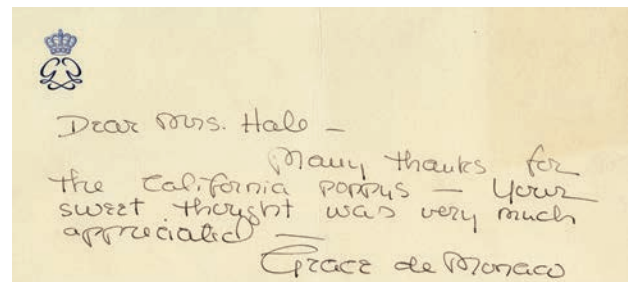 Dear Mrs. Hale –
Many thanks for
the California poppys – Your
sweet thought was very much
appreciated –
Grace de Monaco